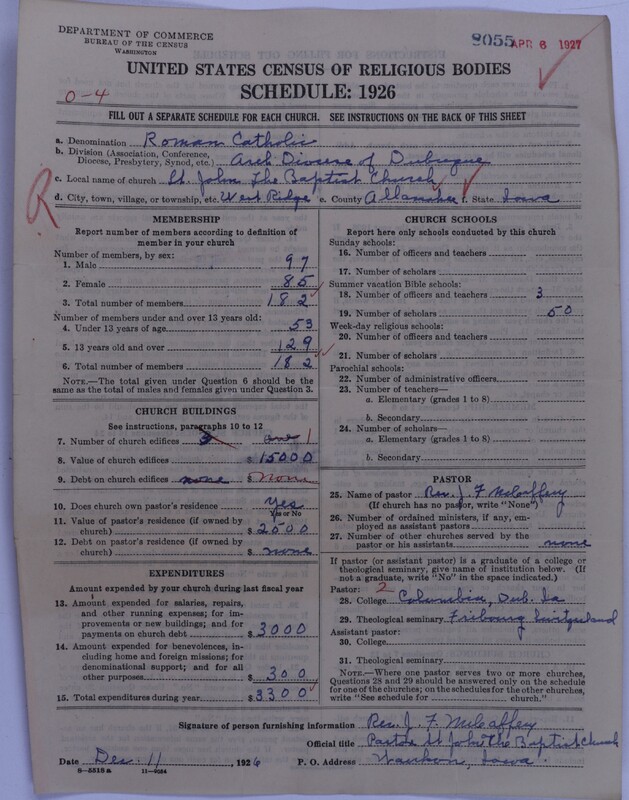 DEPARTMENT OF COMMERCE
BUREAU OF THE CENSUS
WASHINGTON
8055 APR 6 1927
UNITED STATES CENSUS OF RELIGIOUS BODIES
SCHEDULE: 1926
0-4
FILL OUT A SEPARATE SCHEDULE FOR EACH CHURCH. SEE INSTRUCTIONS ON THE BACK OF THIS SHEET
a. Denomination Roman Catholic
b. Division (Association, Conference, Diocese, Presbytery, Synod, etc.) Arch Diocese of Dubuque
c. Local name of church St. John The Baptist Church
R
d. City, town, village, or township, etc. West Ridge e. County Allamakee f. State Iowa
MEMBERSHIP
Report number of members according to definition of
member in your church
Number of members, by sex:
1. Male 97
2. Female 85
3. Total number of members 182
Number of members under and over 13 years old:
4. Under 13 years of age 53
5. 13 years old and over 129
6. Total number of members 182
NOTE.—The total given under Question 6 should be
the same as the total of males and females given under Question 3.
CHURCH BUILDINGS
See instructions, paragraphs 10 to 12
7. Number of church edifices one 1
8. Value of church edifices $ 15000
9. Debt on church edifices none $ None
10. Does church own pastor's residence Yes
Yes or No
11. Value of pastor's residence (if owned by
church) $ 2500
12. Debt on pastor's residence (if owned by
church) $ none
EXPENDITURES
Amount expended by your church during last fiscal year
13. Amount expended for salaries, repairs,
and other running expenses; for im-
provements or new buildings; and for
payments on church debt $ 3000
14. Amount expended for benevolences, in-
cluding home and foreign missions; for
denominational support; and for all
other purposes $ 300
15. Total expenditures during year $ 3300
CHURCH SCHOOLS
Report here only schools conducted by this church
Sunday schools:
16. Number of officers and teachers
17. Number of scholars
Summer vacation Bible schools:
18. Number of officers and teachers 3
19. Number of scholars 50
Week-day religious schools:
20. Number of officers and teachers
21. Number of scholars
Parochial schools:
22. Number of administrative officers
23. Number of teachers—
a. Elementary (grades 1 to 8)
b. Secondary
24. Number of scholars—
a. Elementary (grades 1 to 8)
b. Secondary
PASTOR
25. Name of pastor Rev. J. F McCaffery
(If church has no pastor, write "None")
26. Number of ordained ministers, if any, em-
ployed as assistant pastors
27. Number of other churches served by the
pastor or his assistants none
If pastor (or assistant pastor) is a graduate of a college or
theological seminary, give name of institution below. (If
not a graduate, write "No" in the space indicated.)
Pastor: 2
28. College Columbia, Dub. Ia
29. Theological seminary Fribourg Switzerland
Assistant pastor:
30. College
31. Theological seminary
NOTE.—Where one pastor serves two or more churches,
Questions 28 and 29 should be answered only on the schedule
for one of the churches; on the schedules for the other churches,
write "See schedule for church."
Signature of person furnishing information Rev. J. F McCaffery
Official title Pastor St John The Baptist Church
Date Dec. 11, 1926 P. O. Address Waukon, Iowa.
8—5518 a 11—9064